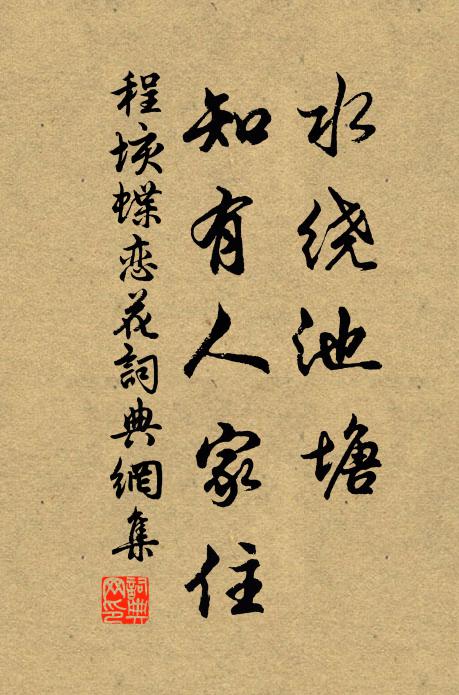 水绕池塘
知有人家住
程垓蝶恋花詞典網集
詞典網印